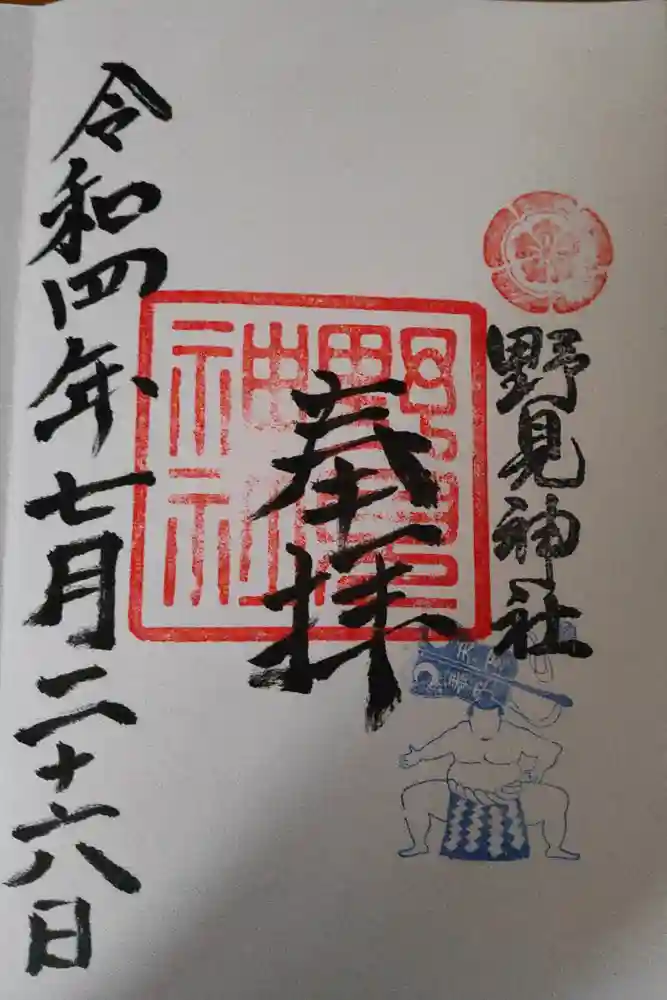 野見神社
奉拝
野見神社
令和四年七月二十六日